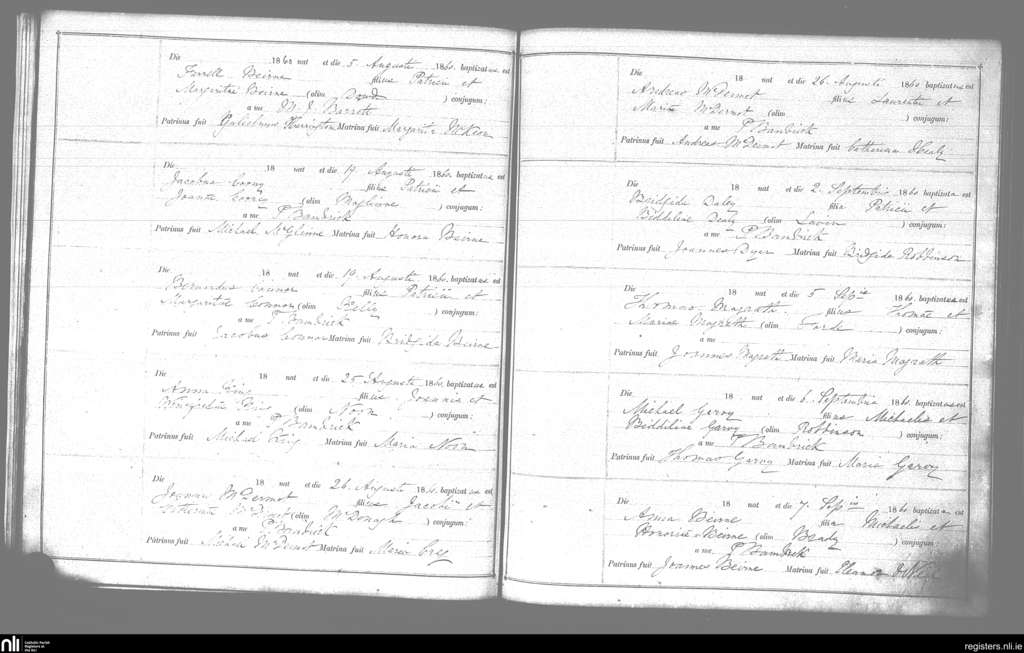 Die 1860 nat et die 5 Augusti 1860. baptizatus est
Farrell Beirne filius Patricii et
Margarita Beirne (olim ) conjugum:
a me M. J. Barrett
Patrinus fuit Gulielmus Harrington Matrina fuit Margarita McKeon
Die 18 nat et die 19 Augusti 1860. baptizatus est
Jacobus filius Patricii et
Joanna (olim McGlinne ) conjugum:
a me P Bambrick
Patrinus fuit Michael McGlinne Matrina fuit Honora Beirne
Die 18 nat et die 19 Augusti 1860. baptizatus est
Bernardus Connor filius Patricii et
Margaritae Connor (olim ) conjugum:
a me P Bambrick
Patrinus fuit Jacobus Connor Matrina fuit Bridgida Beirne
Die 18 nat et die 25 Augusti 1860. baptizat est
Anna King Joannis et
King (olim Noon ) conjugum:
a me P Bambrick
Patrinus fuit Michael King Matrina fuit Maria Noon
Die 18 nat et die 26 Augusti 1860. baptizat est
Joanna McDermot Jacobi et
Catherina McDermot (olim McDonagh ) conjugum:
a me P Bambrick
Patrinus fuit Michael McDermot Matrina fuit Maria
Die 18 nat et die 26 Augusti 1860 baptizatus est
Andreas McDermot filius Laurentii et
Maria McDermot (olim ) conjugum:
a me P Bambrick
Patrinus fuit Andreas McDermot Matrina fuit Catherina Healy
Die 18 nat et die 2 Septembris 1860 baptizata est
Bridgida Daley filia Patricii et
Biddelina (olim Lavin ) conjugum:
a me P Bambrick
Patrinus fuit Joannes Dyer Matrina fuit Bridgida Robbinson
Die 18 nat et die 5 Sepis 1860. baptizatus est
Thomas Magrath filius Thomae et
Mariae Magrath (olim Forde ) conjugum:
a me
Patrinus fuit Joannes Magrath Matrina fuit Maria Magrath
Die 18 nat et die 6 Septembris 1860. baptizatus est
Michael Garvy filius Michaelis et
Biddelina Garvy (olim Robbinson ) conjugum:
a me P Bambrick
Patrinus fuit Thomas Garvy Matrina fuit Maria Garvy
Die 18 nat et die 7 Sepis 1860 baptizata est
Anna Beirne filia Michaelis et
Honoria Beirne (olim Healy ) conjugum:
a me P Bambrick
Patrinus fuit Joannes Beirne Matrina fuit Eleanor
nli Catholic Parish Registers at the NLI
registers.nli.ie